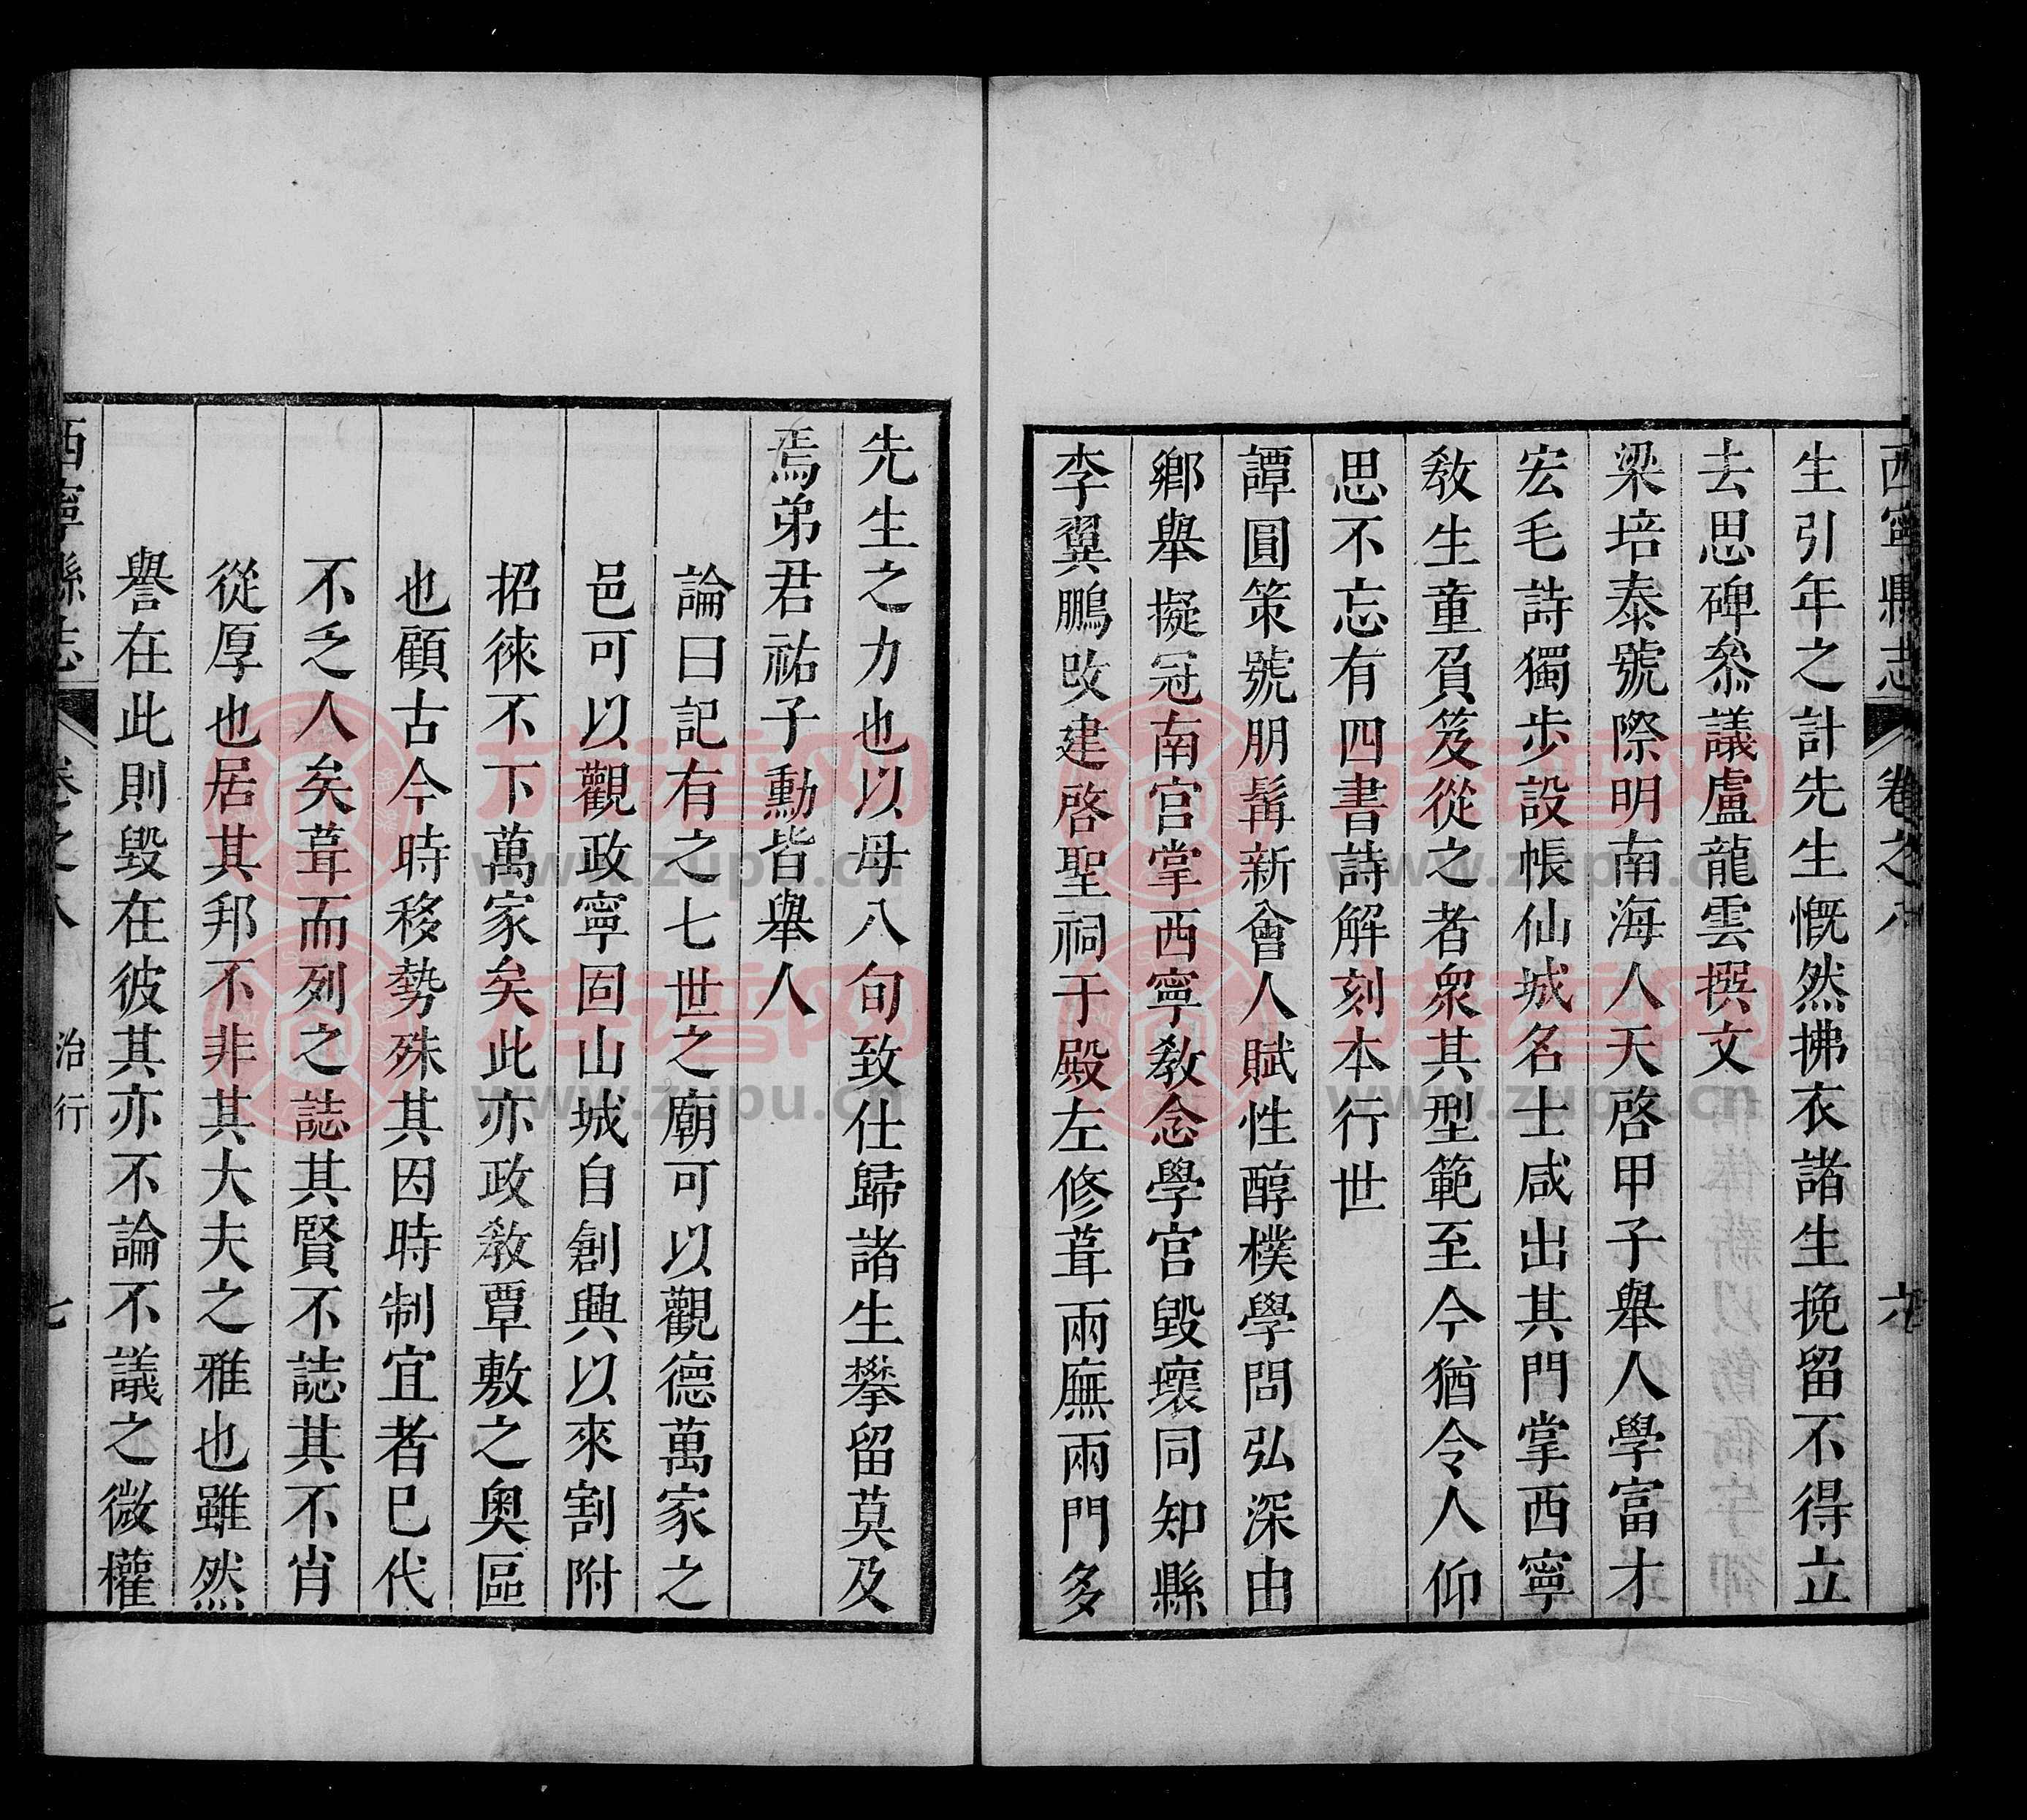 西寧縣志 卷之八 六
生引年之計先生慨然拂衣諸生挽留不得立
去思碑叅議盧龍雲撰文
梁培泰號際明南海人天啓甲子舉人學富才
宏毛詩獨步設帳仙城名士咸出其門掌西寧
教生童負笈從之者衆其型範至今猶令人仰
思不忘有四書詩解刻本行世
譚圓策號朋髯新會人賦性醇樸學問弘深由
鄉舉擬冠南宮掌西寧教念學宮毀壞同知縣
李翼鵬改建啓聖祠于殿左修葺兩廡兩門多
先生之力也以母八旬致仕歸諸生攀留莫及
焉弟君祐子勳皆舉人
論曰記有之七世之廟可以觀德萬家之
邑可以觀政寧固山城自創興以來割附
招徠不下萬家矣此亦政教覃敷之奧區
也顧古今時移勢殊其因時制宜者已代
不乏人矣葺而列之誌其賢不誌其不肖
從厚也居其邦不非其大夫之雅也雖然
譽在此則毀在彼其亦不論不議之微權
西寧縣志 卷之八 治行 七
族谱网
www.zupu.cn
族谱网
www.zupu.cn
族谱网
www.zupu.cn
族谱网
www.zupu.cn